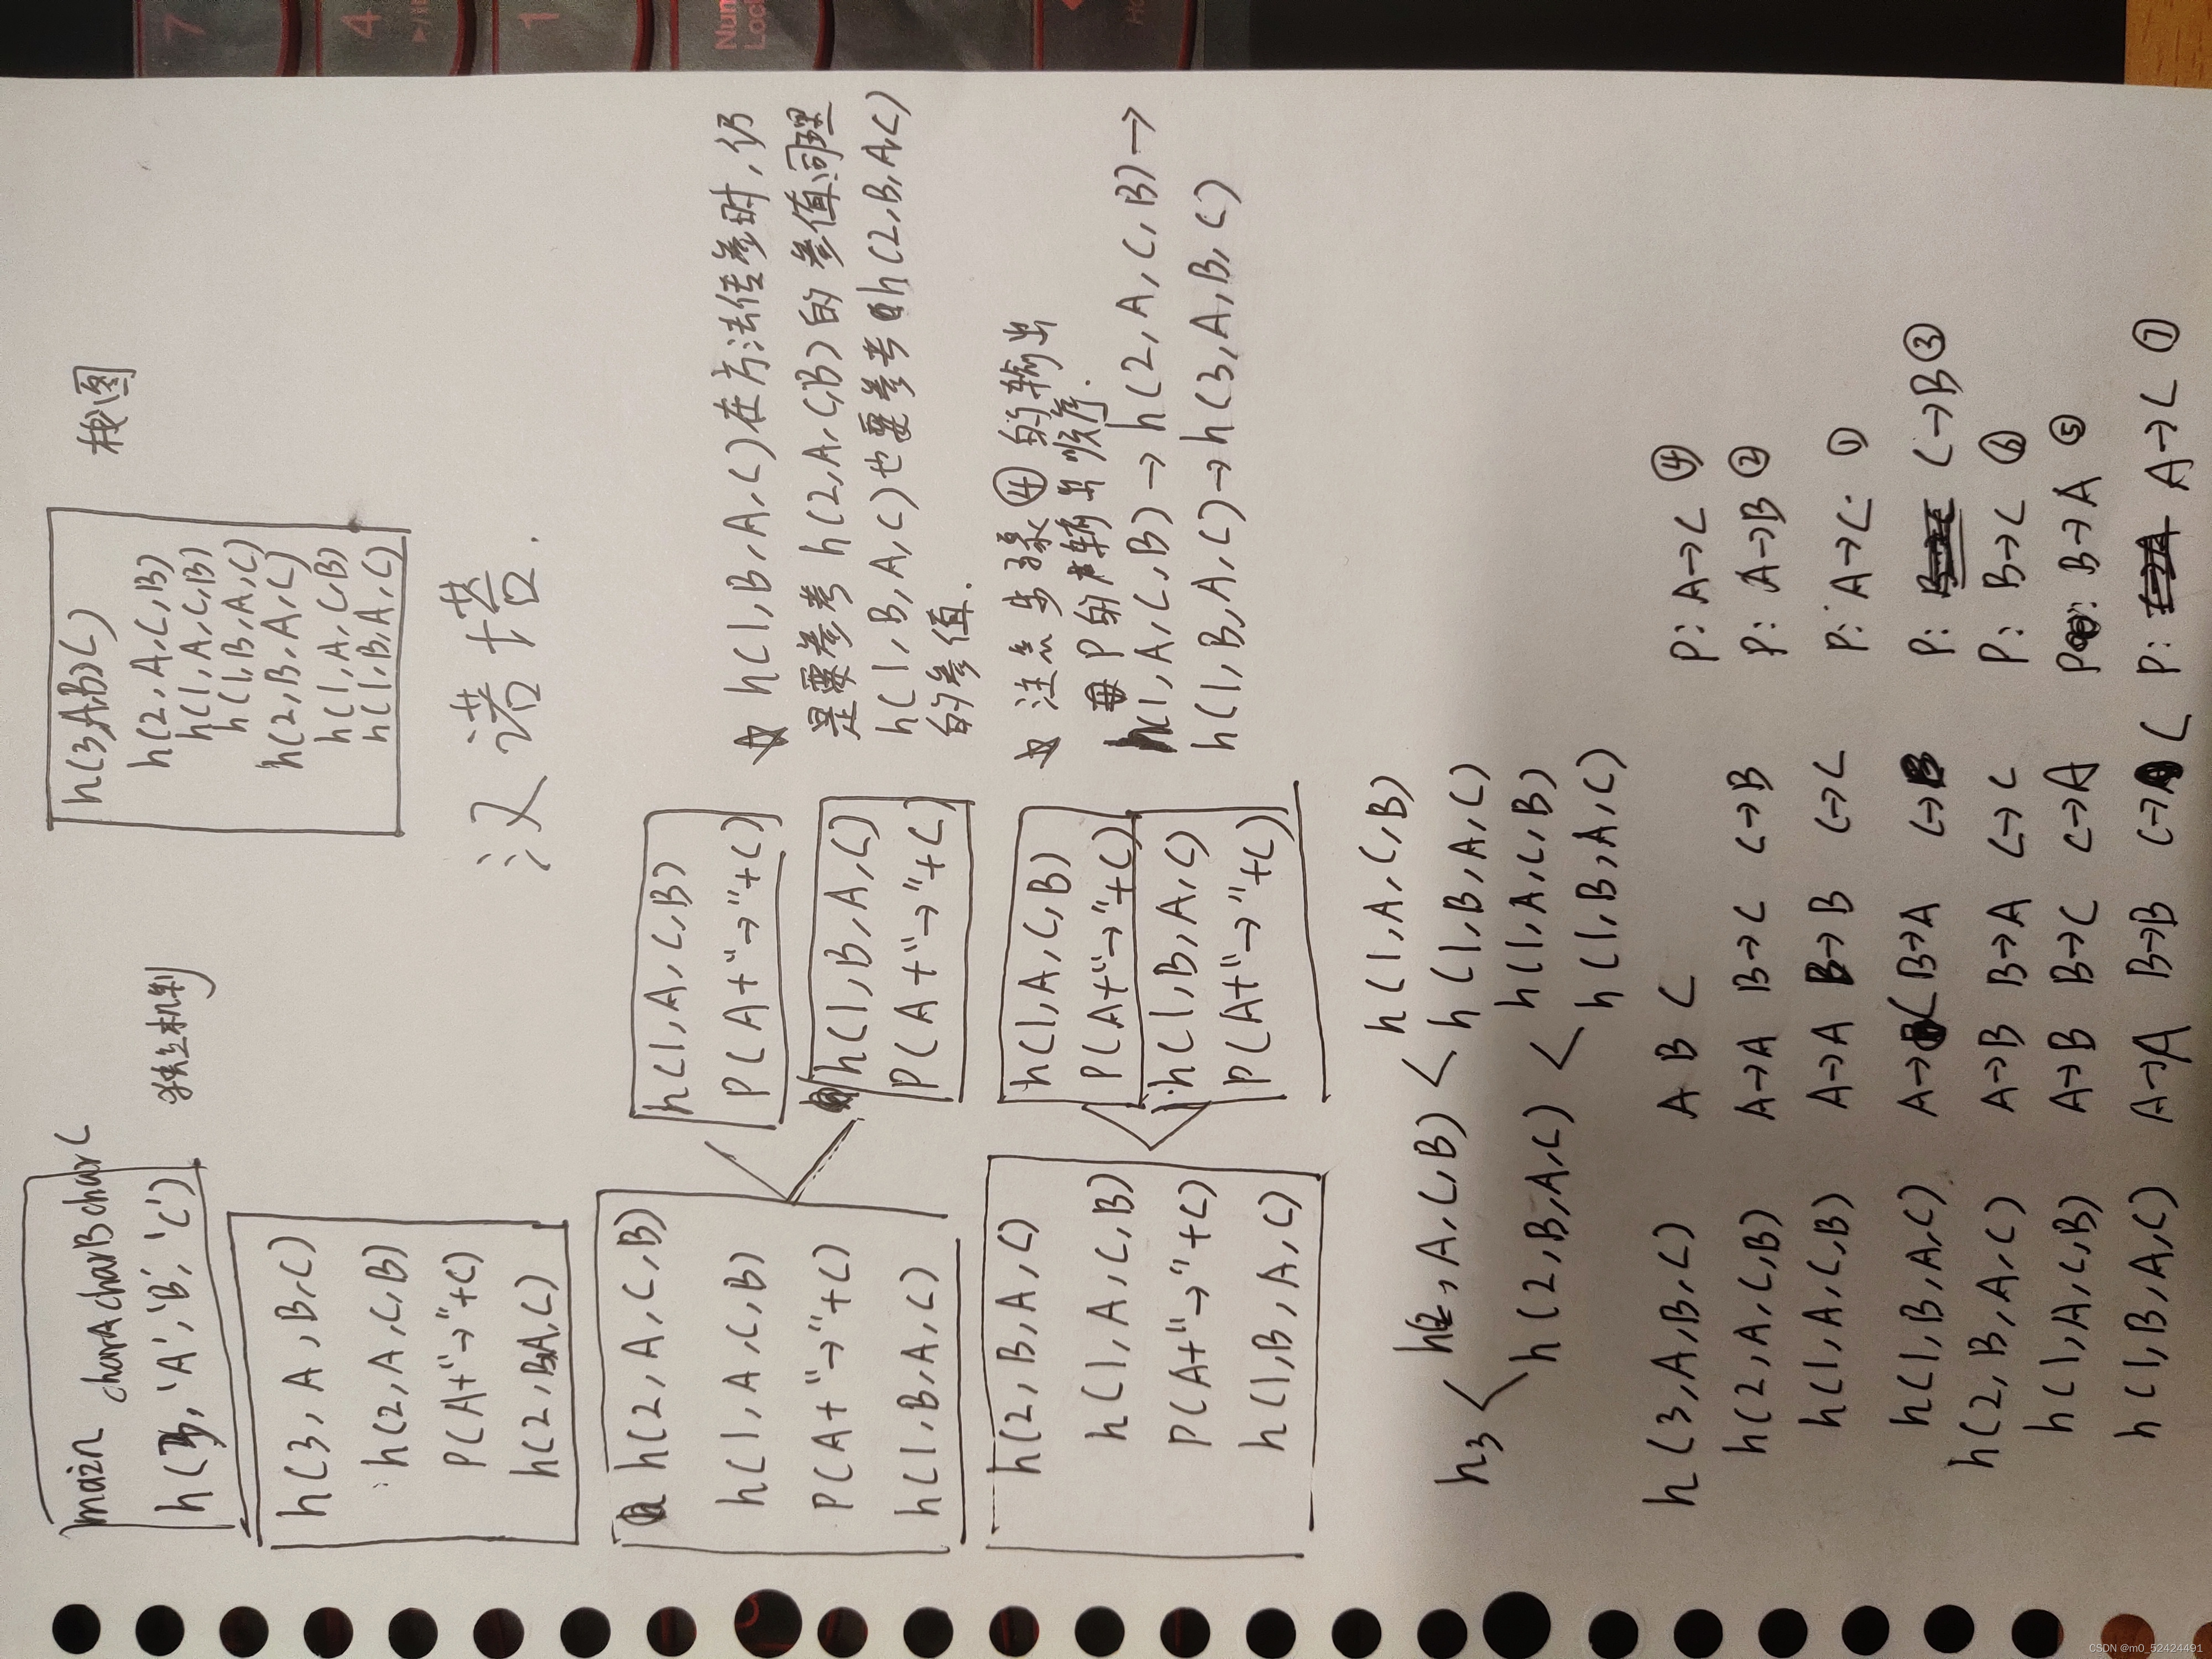 main charA charB charC
h(3, 'A', 'B', 'C')
h(3, A, B, C)
h(2, A, C, B)
P(A+"→"+C)
h(2, B, A, C)
h(2, A, C, B)
h(1, A, C, B)
P(A+"→"+C)
h(1, B, A, C)
h(2, B, A, C)
h(1, A, C, B)
P(A+"→"+C)
h(1, B, A, C)
h(1, A, C, B)
P(A+"→"+C)
h(1, B, A, C)
P(A+"→"+C)
h(1, A, C, B)
P(A+"→"+C)
h(1, B, A, C)
P(A+"→"+C)
h(3, A, B, C)
h(2, A, C, B)
h(1, A, C, B)
h(1, B, A, C)
h(2, B, A, C)
h(1, A, C, B)
h(1, B, A, C)
栈图
汉诺塔.
☆ h(1, B, A, C)在方法传参时,仍
是要参考 h(2, A, C, B)的参值,同理
h(1, B, A, C)也要参考h(2, B, A, C)
的参值.
☆ 注意步骤④的输出
P的输出顺序.
h(1, A, C, B)→h(2, A, C, B)→
h(1, B, A, C)→h(3, A, B, C)
h3
h(2, A, C, B)
h(1, A, C, B)
h(1, B, A, C)
h(2, B, A, C)
h(1, A, C, B)
h(1, B, A, C)
h(3, A, B, C) A B C P: A→C ④
h(2, A, C, B) A→A B→C C→B P: A→B ②
h(1, A, C, B) A→A B→B C→C P: A→C ①
h(1, B, A, C) A→C B→A C→B P: C→B ③
h(2, B, A, C) A→B B→A C→C P: B→C ⑥
h(1, A, C, B) A→B B→C C→A P: B→A ⑤
h(1, B, A, C) A→A B→B C→C P: A→C ⑦
Num
Lock
7
4
1
CSDN @m0_52424491